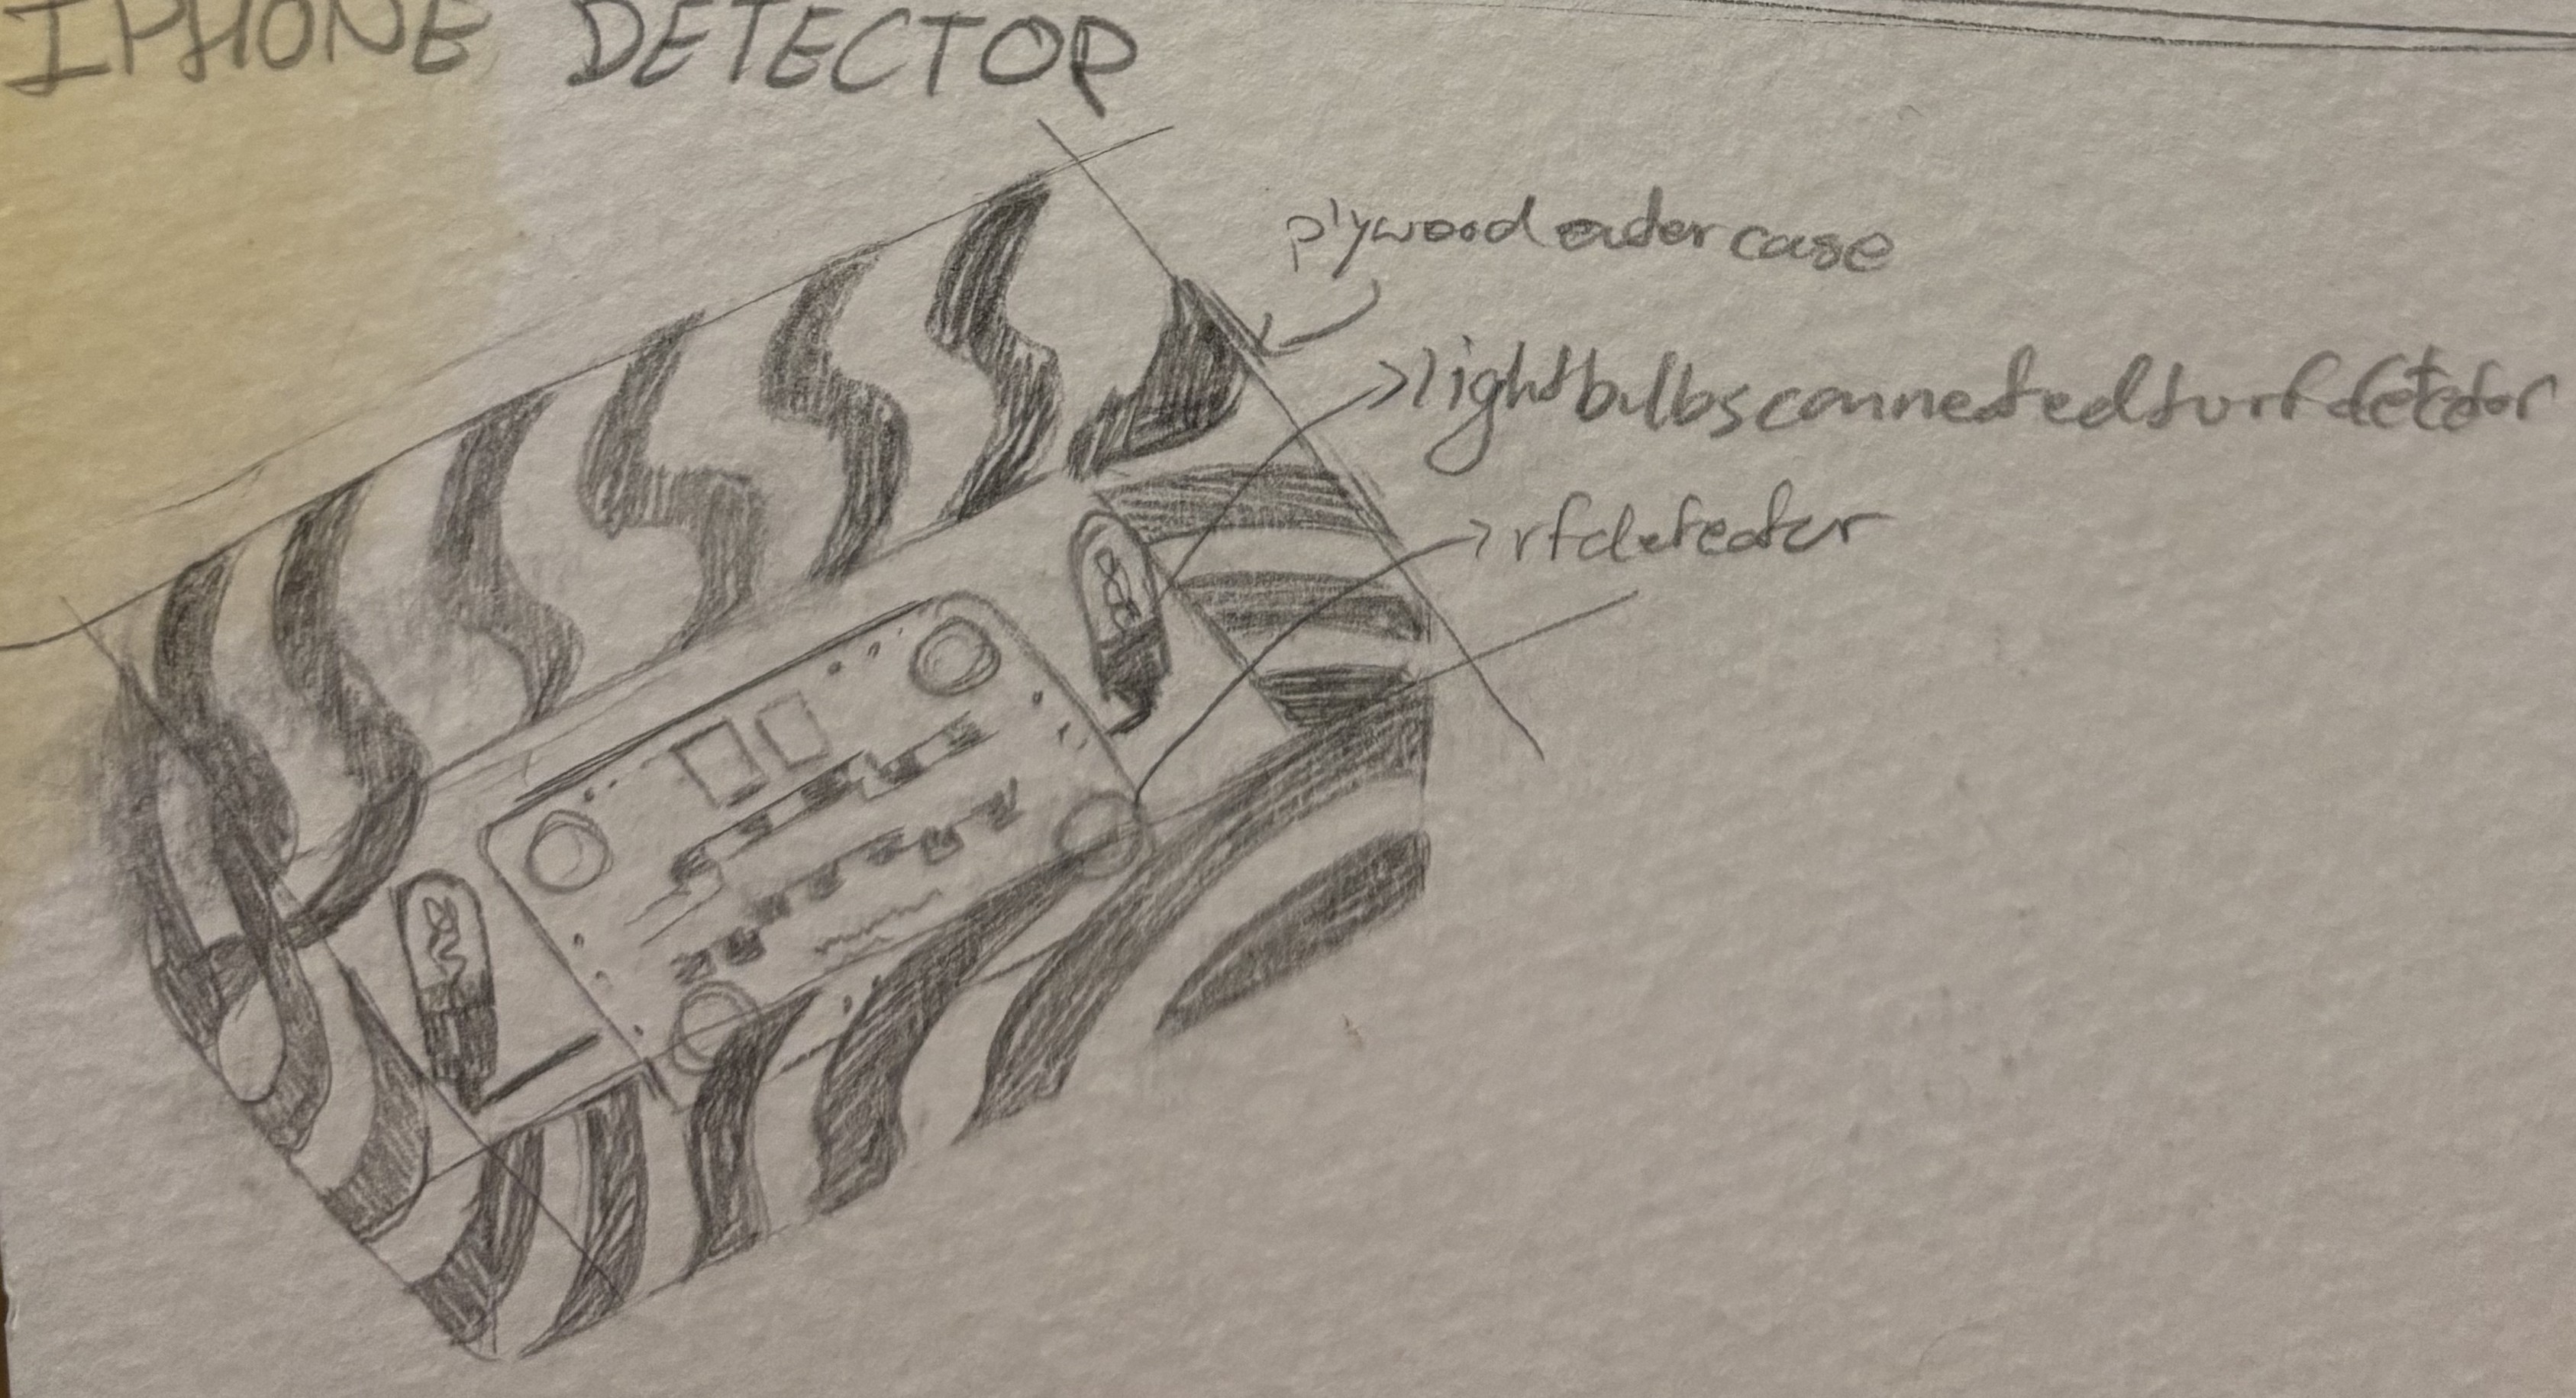 IPHONE DETECTOR
plywood outer case
lightbulbs connected to rf detector
rf detector